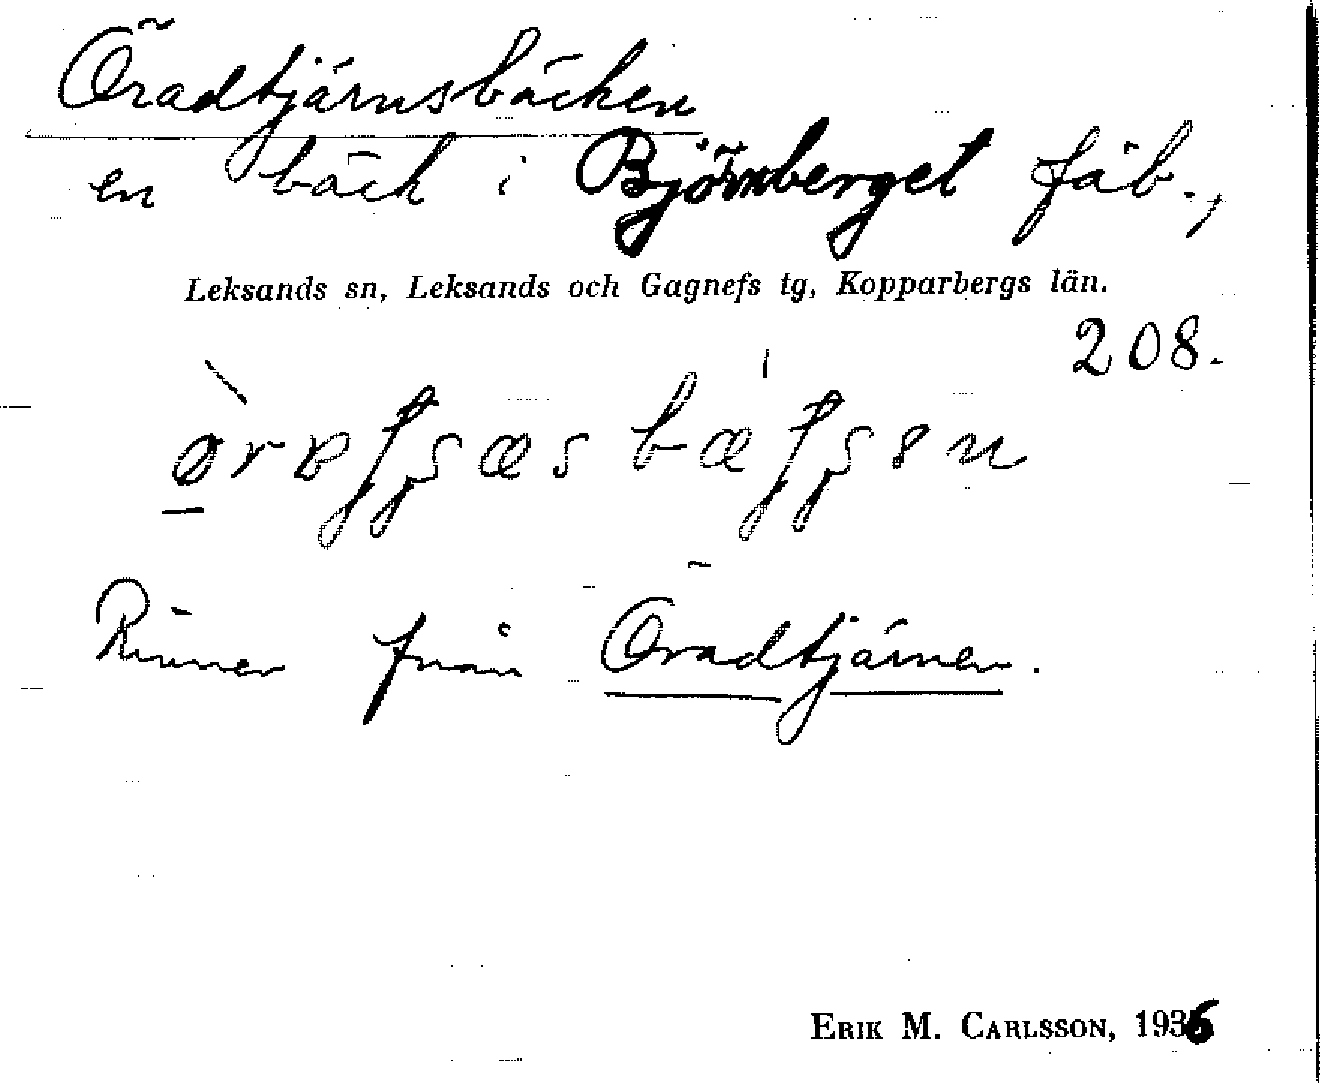 Öradtjärnsbäcken
en bäck i Björnberget fäb.,
Leksands sn, Leksands och Gagnefs tg, Kopparbergs län.
208.
Rinner från Öradtjärnen.
ERIK M. CARLSSON, 1936